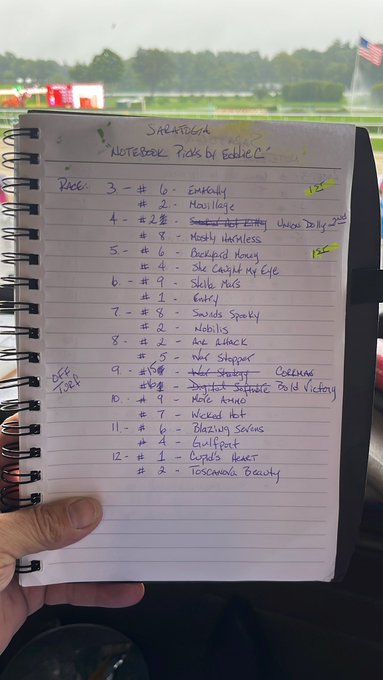 SARATOGA
"NOTEBOOK Picks by Eddie C."
RACE: 3 - # 6 - EMPATHLY 1st
# 2 - Mouillage
4 - # 2 - Union Dolly 2nd
# 8 - Mostly Harmless
5 - # 6 - Backyard Money 1st
# 4 - She Caught My Eye
6 - # 9 - Stella Mars
# 1 - Entry
7 - # 8 - Sounds Spooky
# 2 - Nobilis
8 - # 2 - Air Attack
# 5 - War Stopper
9 - # - War Strategy
OFF TURF # - Digital Software Bold Victory
10 - # 9 - More Ammo
# 7 - Wicked Hot
11 - # 6 - Blazing Sevens
# 4 - Gulfport
12 - # 1 - Cupid's Heart
# 2 - Toscanova Beauty